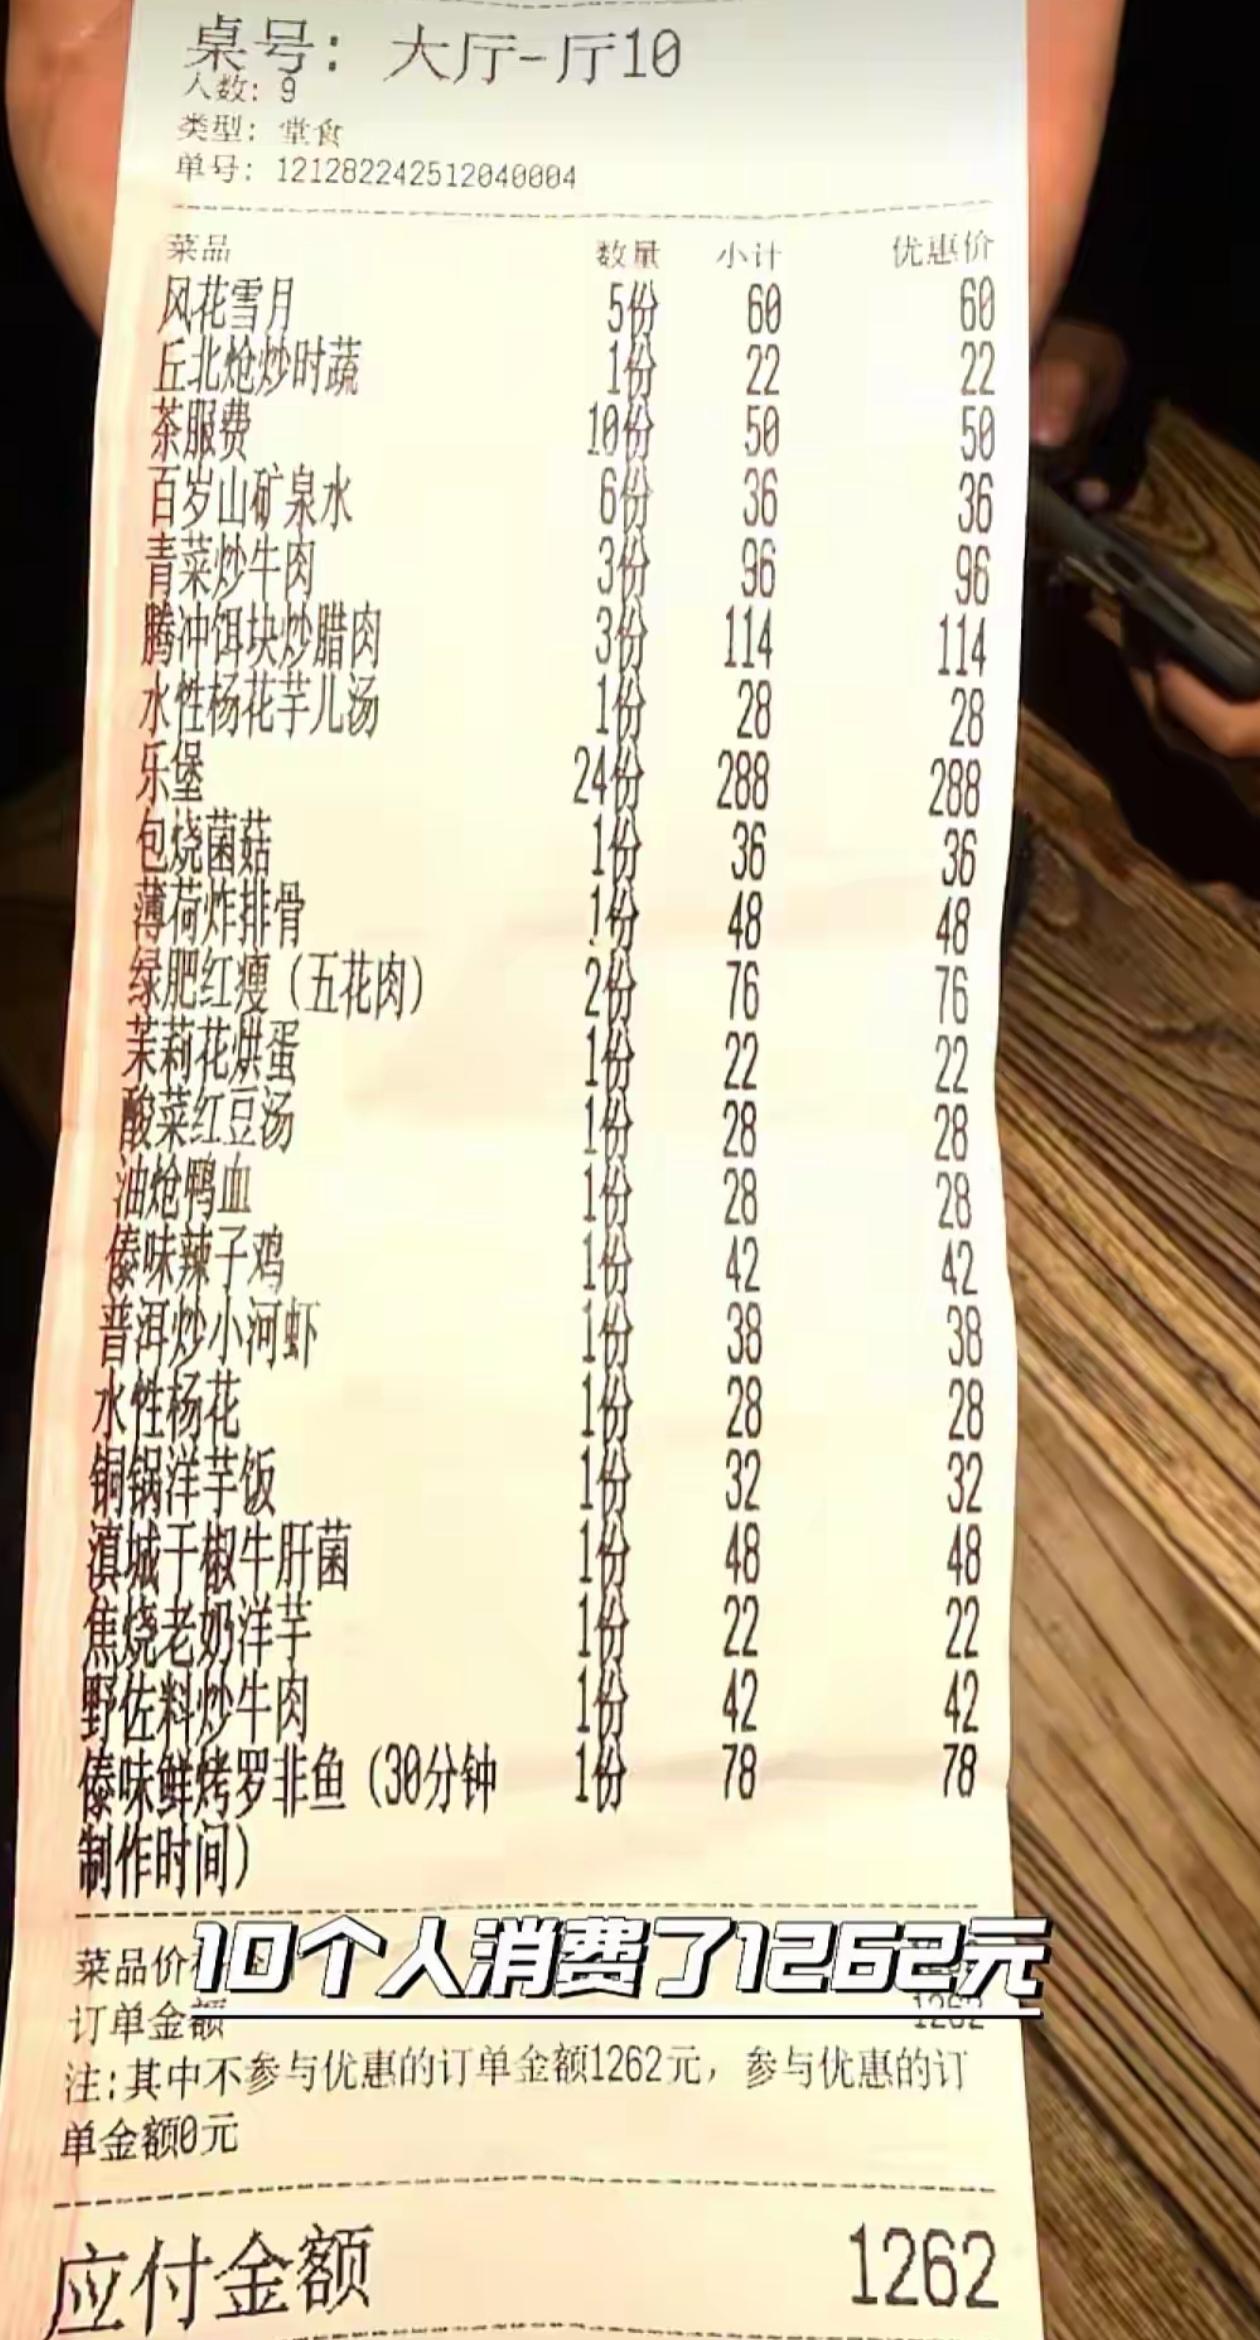 桌号: 大厅-厅10
人数: 9
类型: 堂食
单号: 121282242512040004
菜品 数量 小计 优惠价
风花雪月 5份 60 60
丘北炝炒时蔬 1份 22 22
茶服费 10份 50 50
百岁山矿泉水 6份 36 36
青菜炒牛肉 3份 96 96
腾冲饵块炒腊肉 3份 114 114
水性杨花芋儿汤 1份 28 28
乐堡 24份 288 288
包烧菌菇 1份 36 36
薄荷炸排骨 1份 48 48
绿肥红瘦(五花肉) 2份 76 76
茉莉花烘蛋 1份 22 22
酸菜红豆汤 1份 28 28
油炝鸭血 1份 28 28
傣味辣子鸡 1份 42 42
普洱炒小河虾 1份 38 38
水性杨花 1份 28 28
铜锅洋芋饭 1份 32 32
滇城干椒牛肝菌 1份 48 48
焦烧老奶洋芋 1份 22 22
野佐料炒牛肉 1份 42 42
傣味鲜烤罗非鱼(30分钟 1份 78 78
制作时间)
菜品价
10个人消费了1262元
订单金额 1262
注:其中不参与优惠的订单金额1262元，参与优惠的订
单金额0元
应付金额 1262